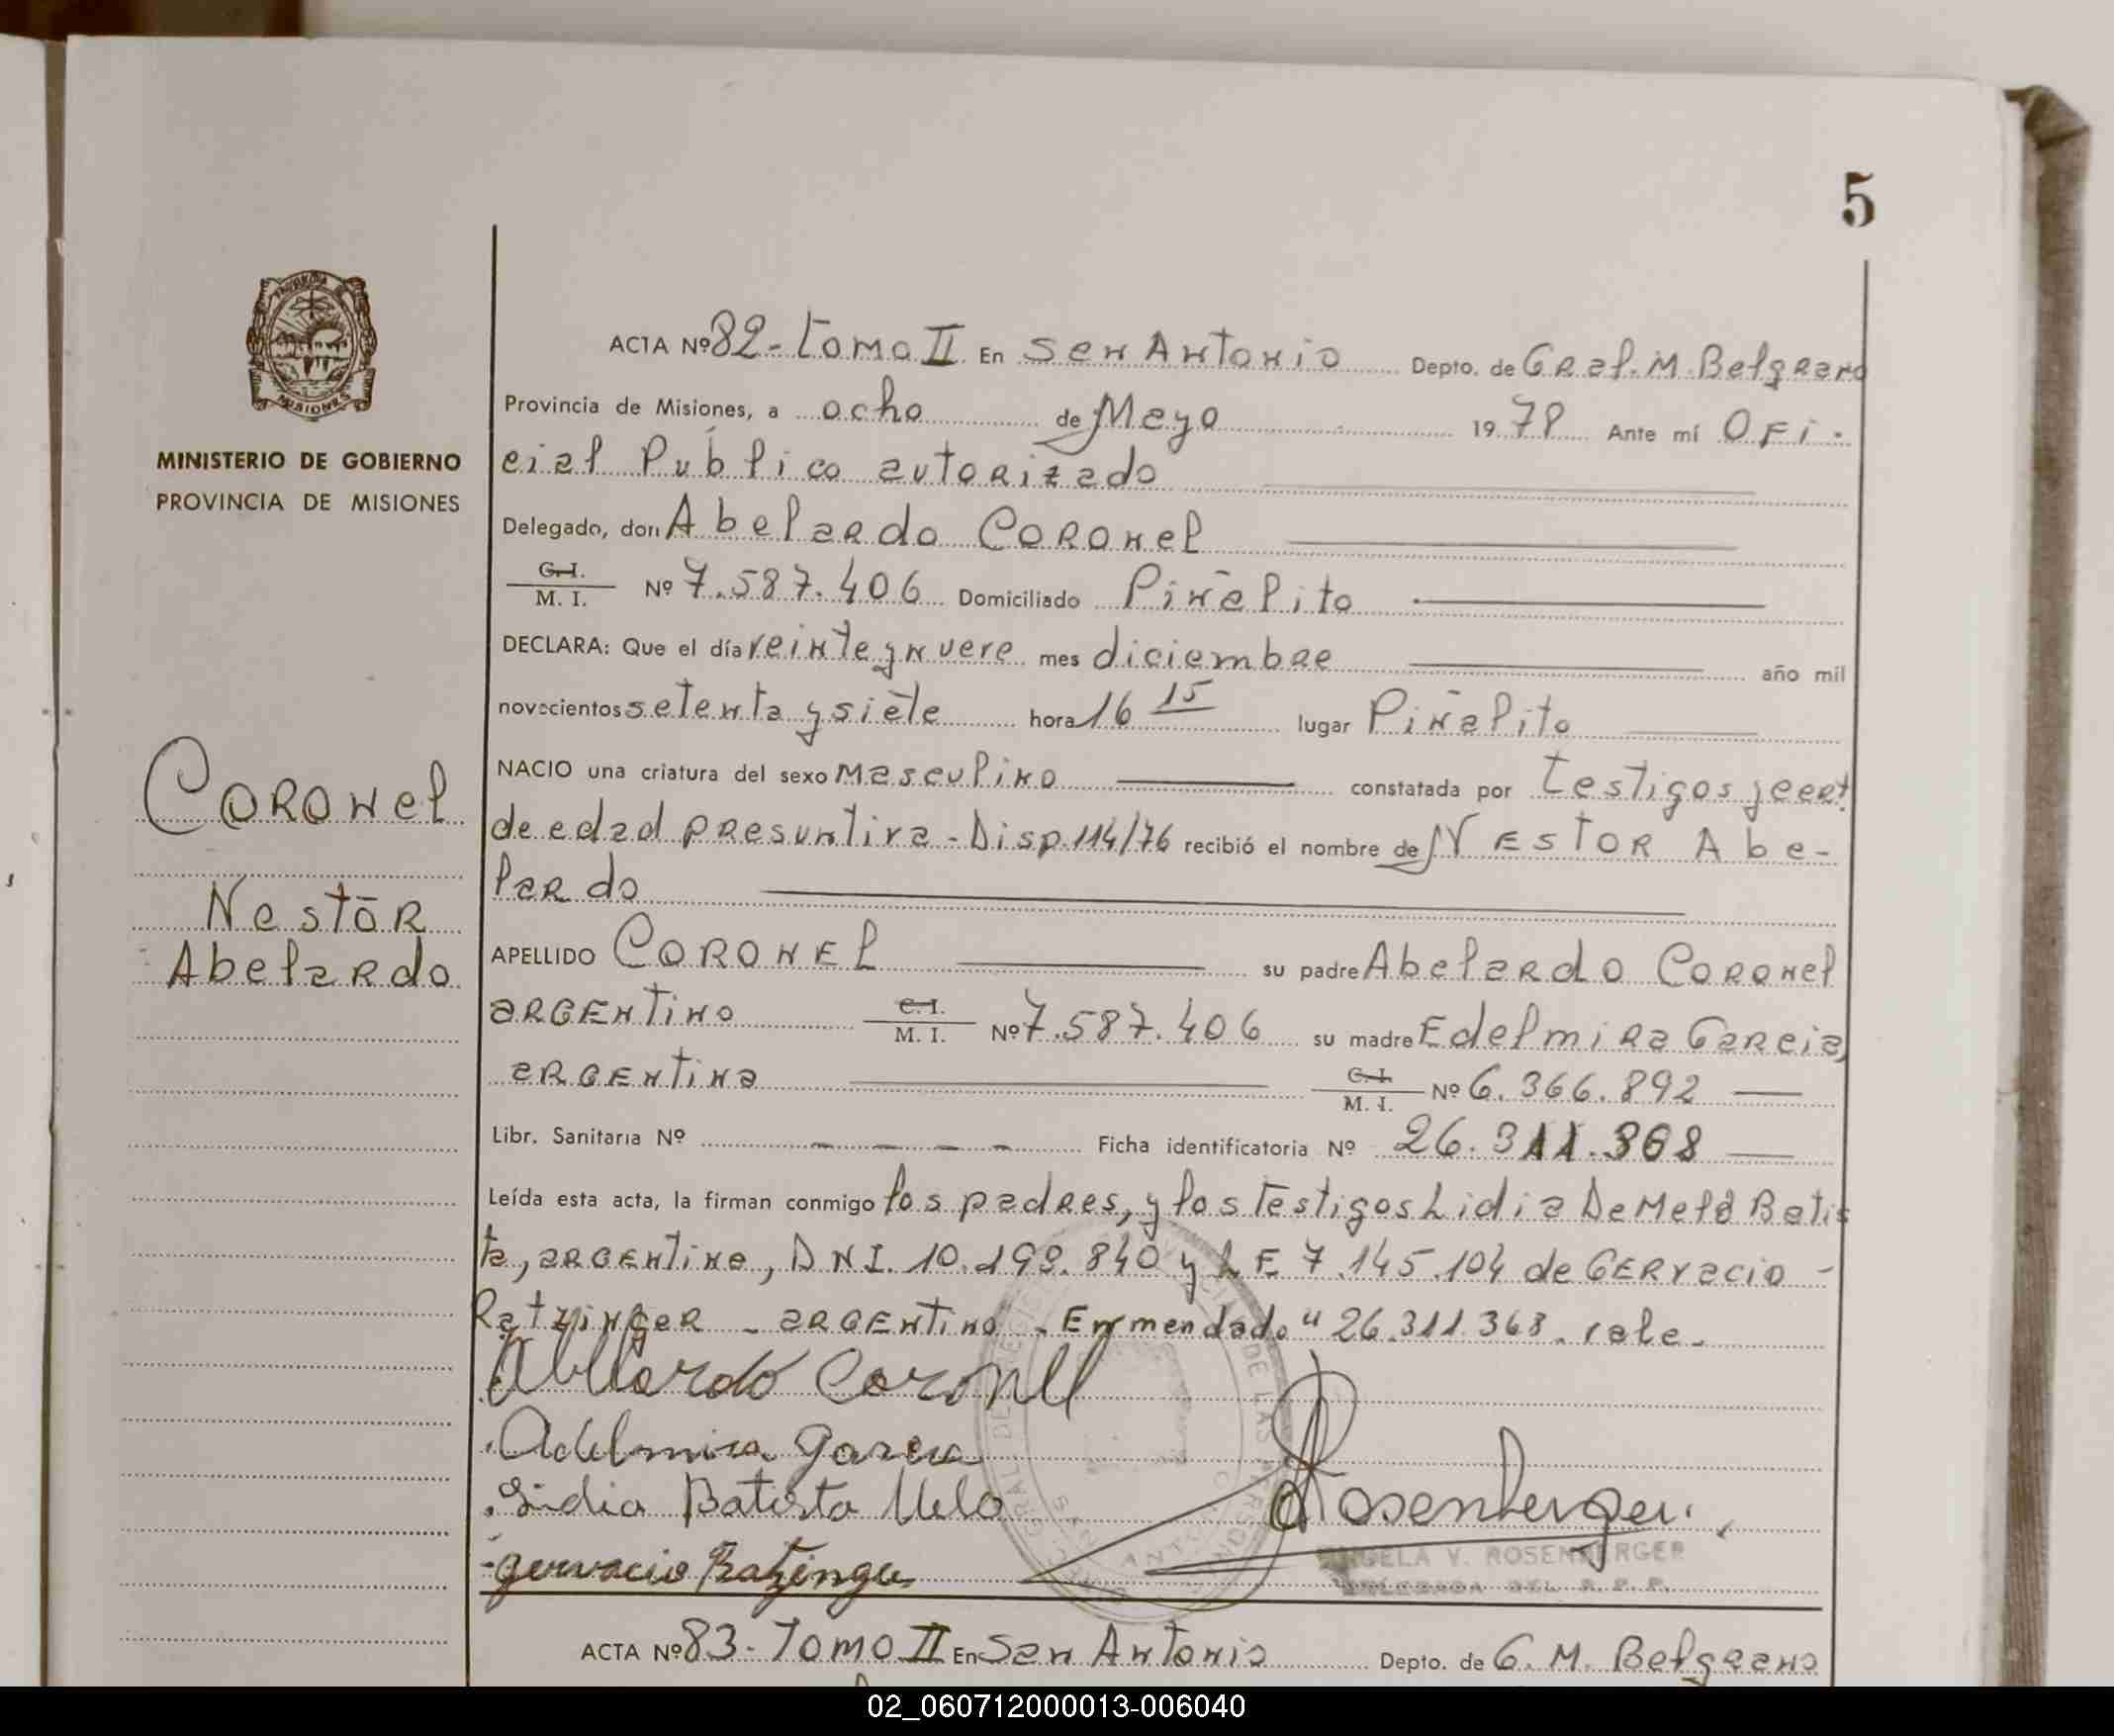 5
PROVINCIA DE
MISIONES
MINISTERIO DE GOBIERNO
PROVINCIA DE MISIONES
Coronel
Nestor
Abelardo
ACTA Nº 82 - Tomo II En San Antonio Depto. de Gral. M. Belgrano
Provincia de Misiones, a ocho de Mayo 1978 Ante mí Ofi-
cial Publico autorizado
Delegado, don Abelardo Coronel
C. I. / M. I. Nº 7.587.406 Domiciliado Piñalito
DECLARA: Que el día veinte y nueve mes diciembre año mil
novecientos setenta y siete hora 16 15 lugar Piñalito
NACIO una criatura del sexo masculino constatada por testigos y cert.
de edad presuntiva - Disp. 114/76 recibió el nombre de NESTOR Abe-
lardo
APELLIDO CORONEL su padre Abelardo Coronel
argentino C. I. / M. I. Nº 7.587.406 su madre Edelmira Garcia,
argentina C. I. / M. I. Nº 6.366.892
Libr. Sanitaria Nº - - - - Ficha identificatoria Nº 26.311.368
Leída esta acta, la firman conmigo los padres, y los testigos Lidia De Melo Batis
ta, argentina, DNI. 10.199.840 y LE 7.145.104 de Gervacio -
Ratzinger - argentino - Enmendado " 26.311.368. vale.
Abelardo Coronel
Adelmira Garcia
Lidia Batista Melo
Rosenberger.
Gervacio Ratzinger
ANGELA V. ROSENBERGER
DELEGADA DEL R. P. P.
SAN ANTONIO
ACTA Nº 83 - Tomo II En San Antonio Depto. de G. M. Belgrano
02_060712000013-006040